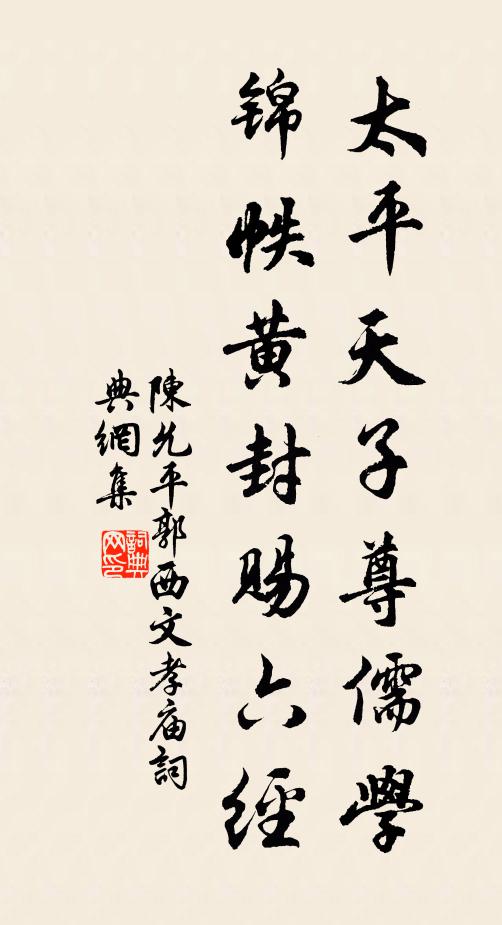 太平天子尊儒學
錦帙黄封賜六經
陳允平郭西文孝庙詞
典網集
詞典
网印